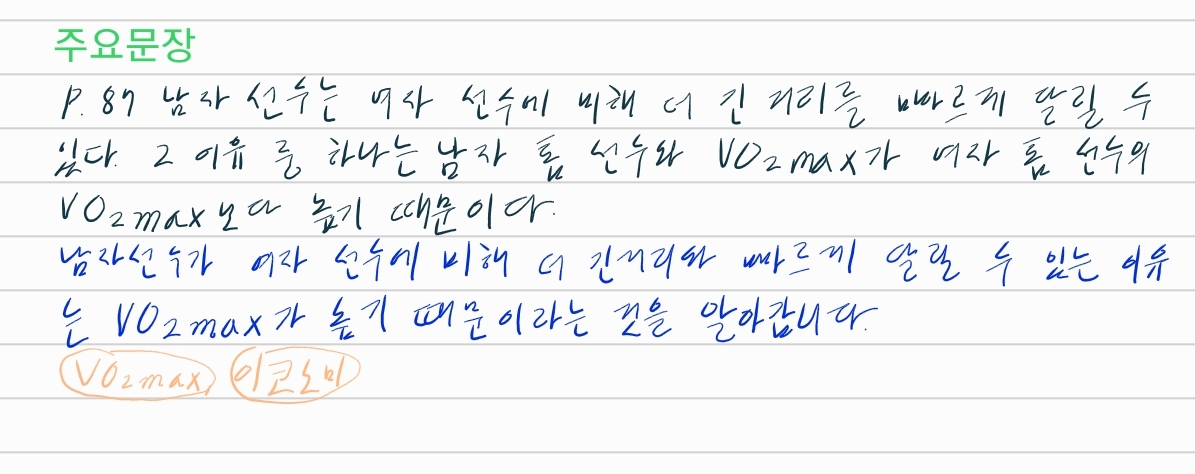 주요문장
P.87 남자 선수는 여자 선수에 비해 더 긴 거리를 빠르게 달릴 수
있다. 그 이유 중 하나는 남자 톱 선수와 VO2max가 여자 톱 선수의
VO2max보다 높기 때문이다.
남자선수가 여자 선수에 비해 더 긴거리와 빠르게 달릴 수 있는 이유
는 VO2max가 높기 때문이라는 것을 알아갑니다.
VO2max, 이코노미